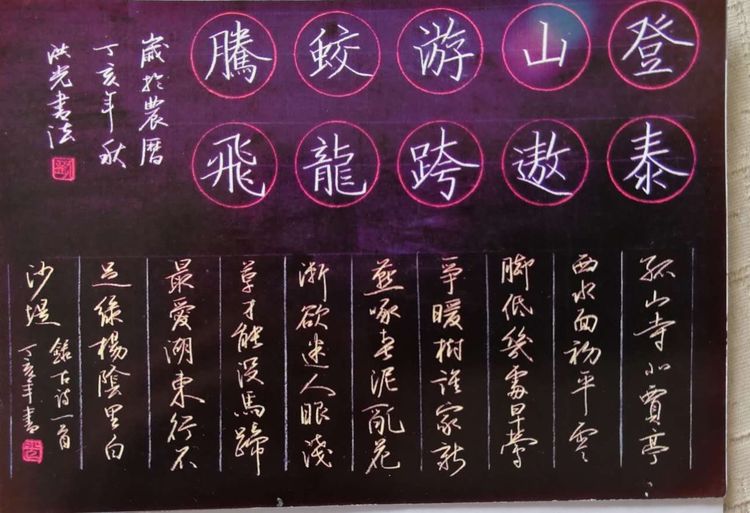 登泰
山遨
游跨
蛟龍
騰飛
歲於農曆
丁亥年秋
洪光書法
孤山寺北賈亭
西水面初平雲
脚低幾處早鶯
爭暖樹誰家新
燕啄春泥亂花
漸欲迷人眼淺
草才能没馬蹄
最愛湖東行不
足綠楊蔭里白
沙堤
錄古詩一首
丁亥年書